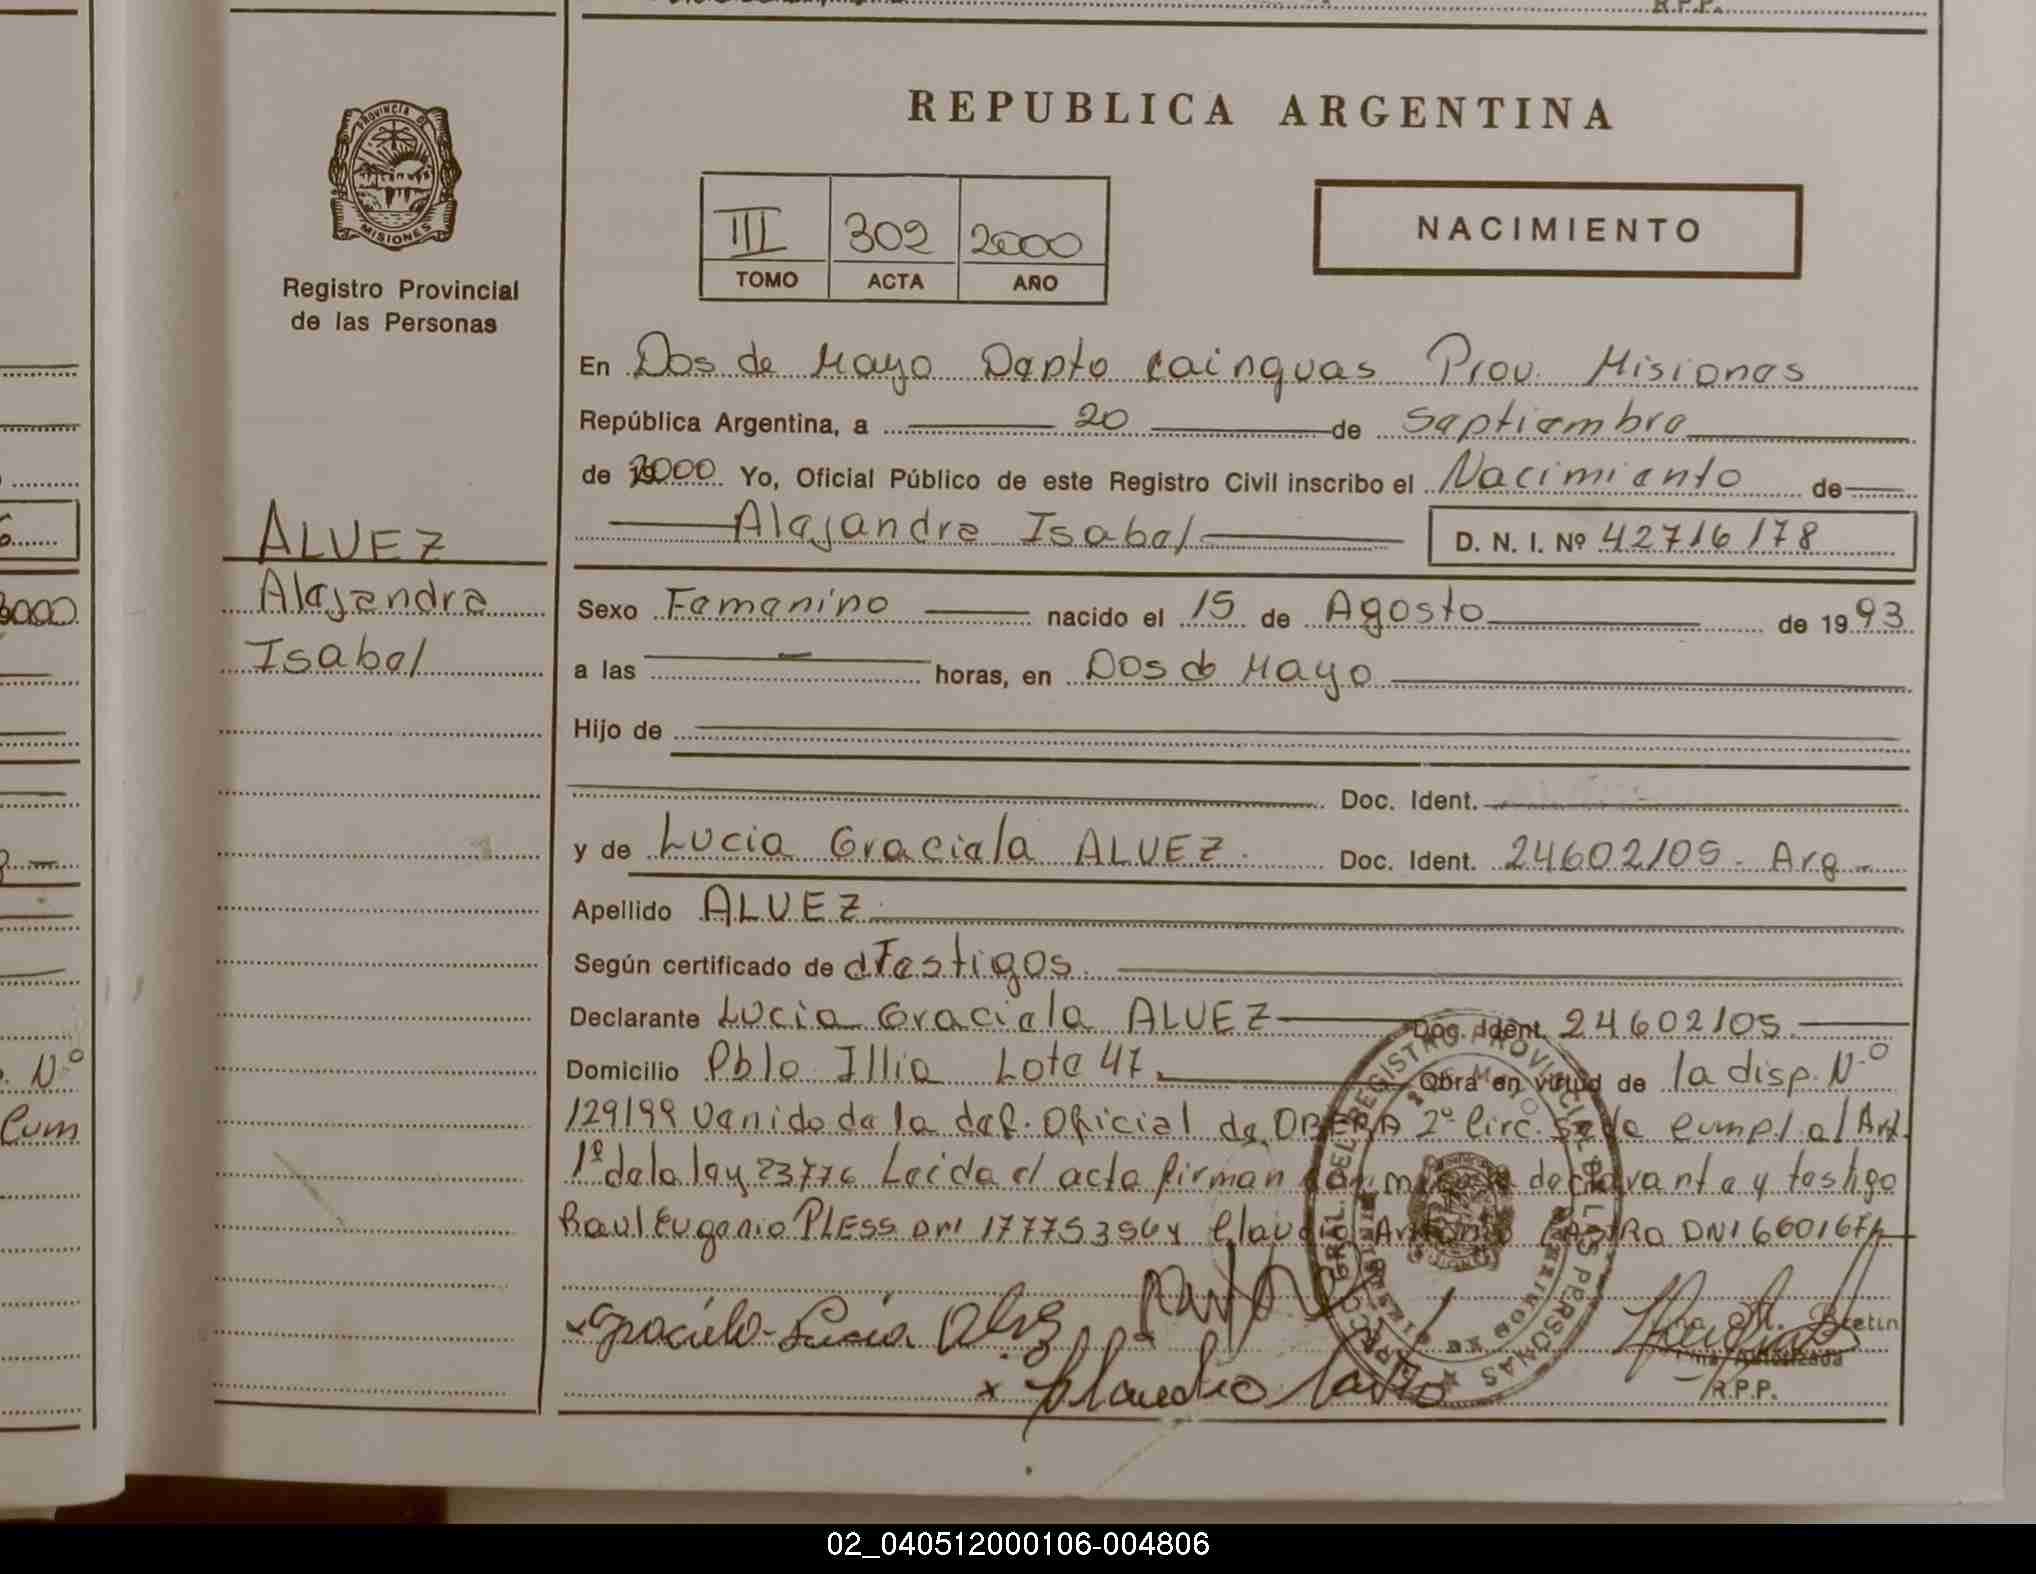 R.P.P.
PROVINCIA DE
MISIONES
Registro Provincial
de las Personas
REPUBLICA ARGENTINA
III 302 2000
TOMO ACTA AÑO
NACIMIENTO
En Dos de Mayo Depto Cainguas Prov. Misiones
República Argentina, a 20 de Septiembre
de 2000 Yo, Oficial Público de este Registro Civil inscribo el Nacimiento de
Alejandra Isabel D. N. I. Nº 42716178
ALVEZ
Alejandra
Isabel
Sexo Femenino nacido el 15 de Agosto de 1993
a las — horas, en Dos de Mayo
Hijo de
Doc. Ident.
y de Lucia Graciela ALVEZ. Doc. Ident. 24602105. Arg.-
Apellido ALVEZ.
Según certificado de dTestigos.
Declarante Lucia Graciela ALVEZ Doc. Ident. 24602105.
Domicilio Pblo Illia Lote 47. Obra en virtud de la disp. Nº
129199 Venido de la def. Oficial de OBERA 2º Circ. Se da cumpl. al Art.
1º de la ley 23776 Leida el acta firman conmigo la declarante y testigo
Raul Eugenio PLESS DNI 17775356 y Claudio Antonio CASTRO DNI
Graciela Lucia Alvez
x Claudio Castro
R.P.P.
REGISTRO PROVINCIAL DE LAS PERSONAS
Nº
Cum
2000
02_040512000106-004806